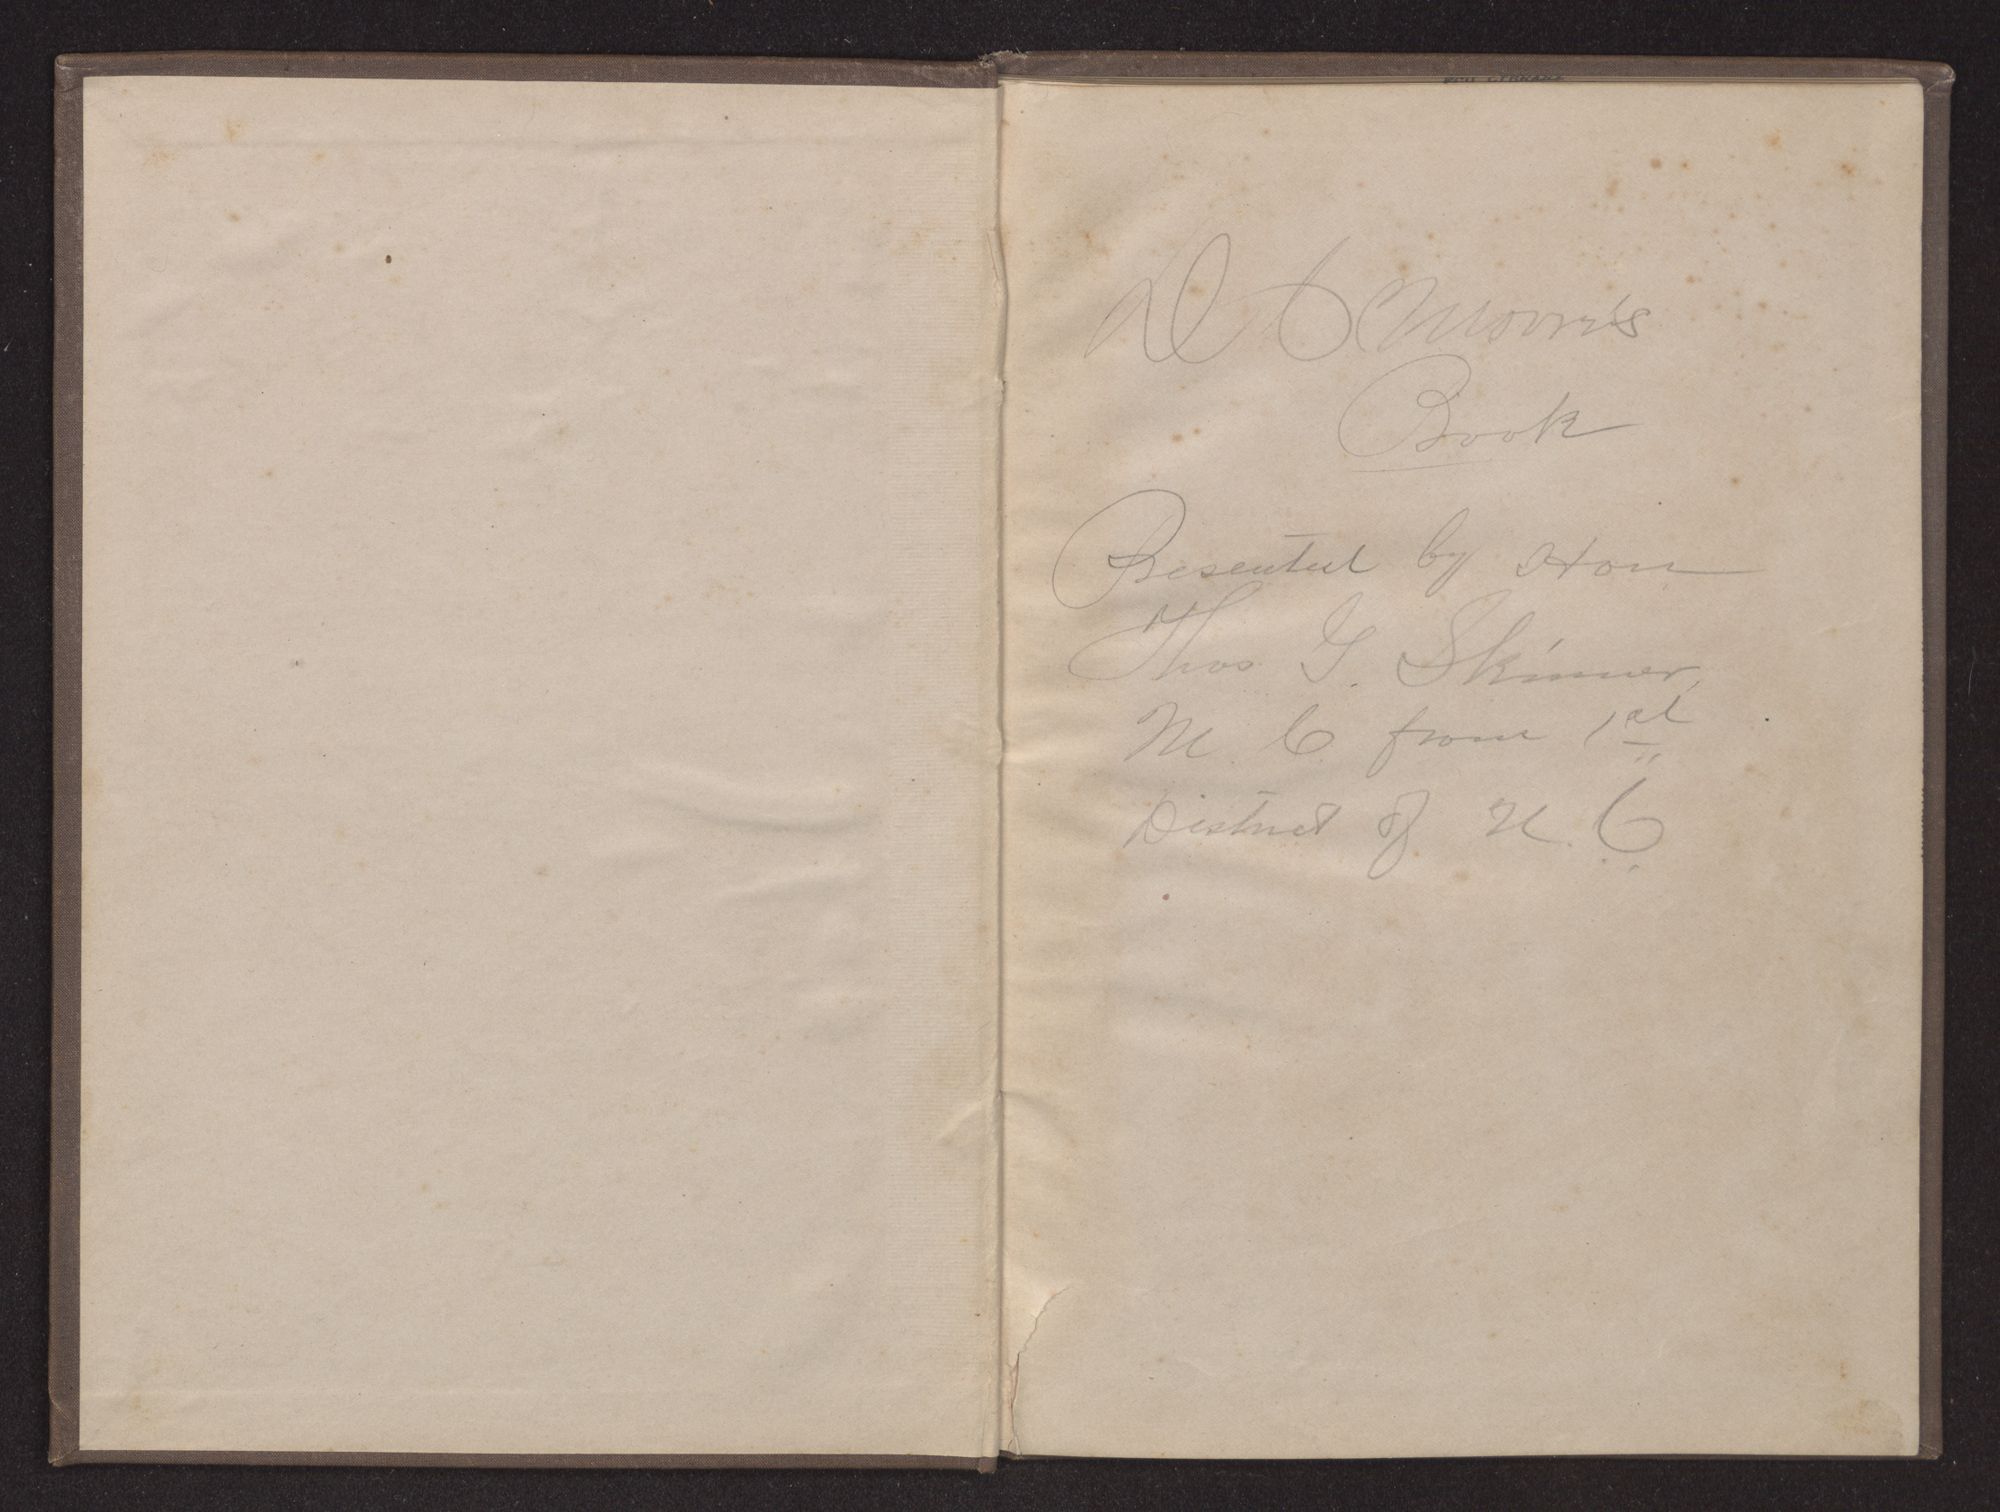 D C Moore's
Book
Presented by Hon
Thos G. Skinner,
M. C. from 1st
District of N. C.